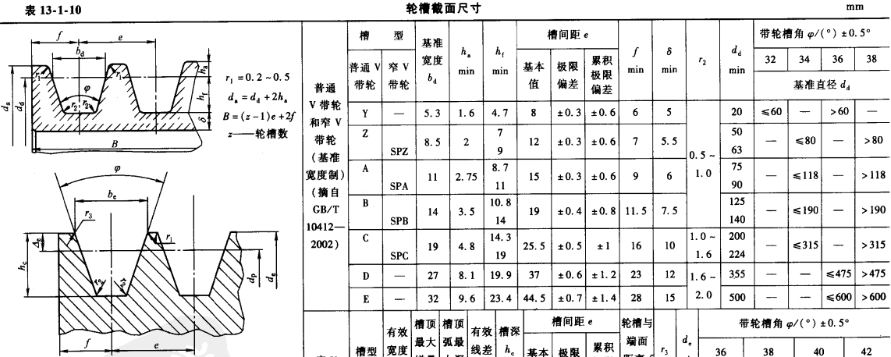 表 13-1-10
轮槽截面尺寸
mm
f e
b_d
r₁ φ r₁ h_a
d_a d_d h_f
r₂ r₂ δ
B
r₁ = 0.2 ~ 0.5
d_a = d_d + 2h_a
B = (z-1)e + 2f
z——轮槽数
φ
b_e
r₃ r₁
Δ_e h_c d_p d_e
f e
普通 V 带轮和窄 V 带轮(基准宽度制)(摘自 GB/T 10412—2002)
槽 型 基准宽度 b_d h_a min h_f min 槽间距 e f min δ min r₂ d_d min 带轮槽角 φ/(°) ±0.5°
普通 V 带轮 窄 V 带轮 基本值 极限偏差 累积极限偏差 32 34 36 38
基准直径 d_d
Y — 5.3 1.6 4.7 8 ±0.3 ±0.6 6 5 0.5 ~ 1.0 20 ≤60 — >60 —
Z SPZ 8.5 2 7 9 12 ±0.3 ±0.6 7 5.5 50 63 — ≤80 — >80
A SPA 11 2.75 8.7 11 15 ±0.3 ±0.6 9 6 75 90 — ≤118 — >118
B SPB 14 3.5 10.8 14 19 ±0.4 ±0.8 11.5 7.5 125 140 — ≤190 — >190
C SPC 19 4.8 14.3 19 25.5 ±0.5 ±1 16 10 1.0 ~ 1.6 200 224 — ≤315 — >315
D — 27 8.1 19.9 37 ±0.6 ±1.2 23 12 1.6 ~ 2.0 355 — — ≤475 >475
E — 32 9.6 23.4 44.5 ±0.7 ±1.4 28 15 500 — — ≤600 >600
槽型 有效宽度 槽顶最大 槽顶弧最 有效线差 槽深 h_c 槽间距 e 轮槽与端面 r₃ d_e 带轮槽角 φ/(°) ±0.5°
基本 极限 累积 36 38 40 42